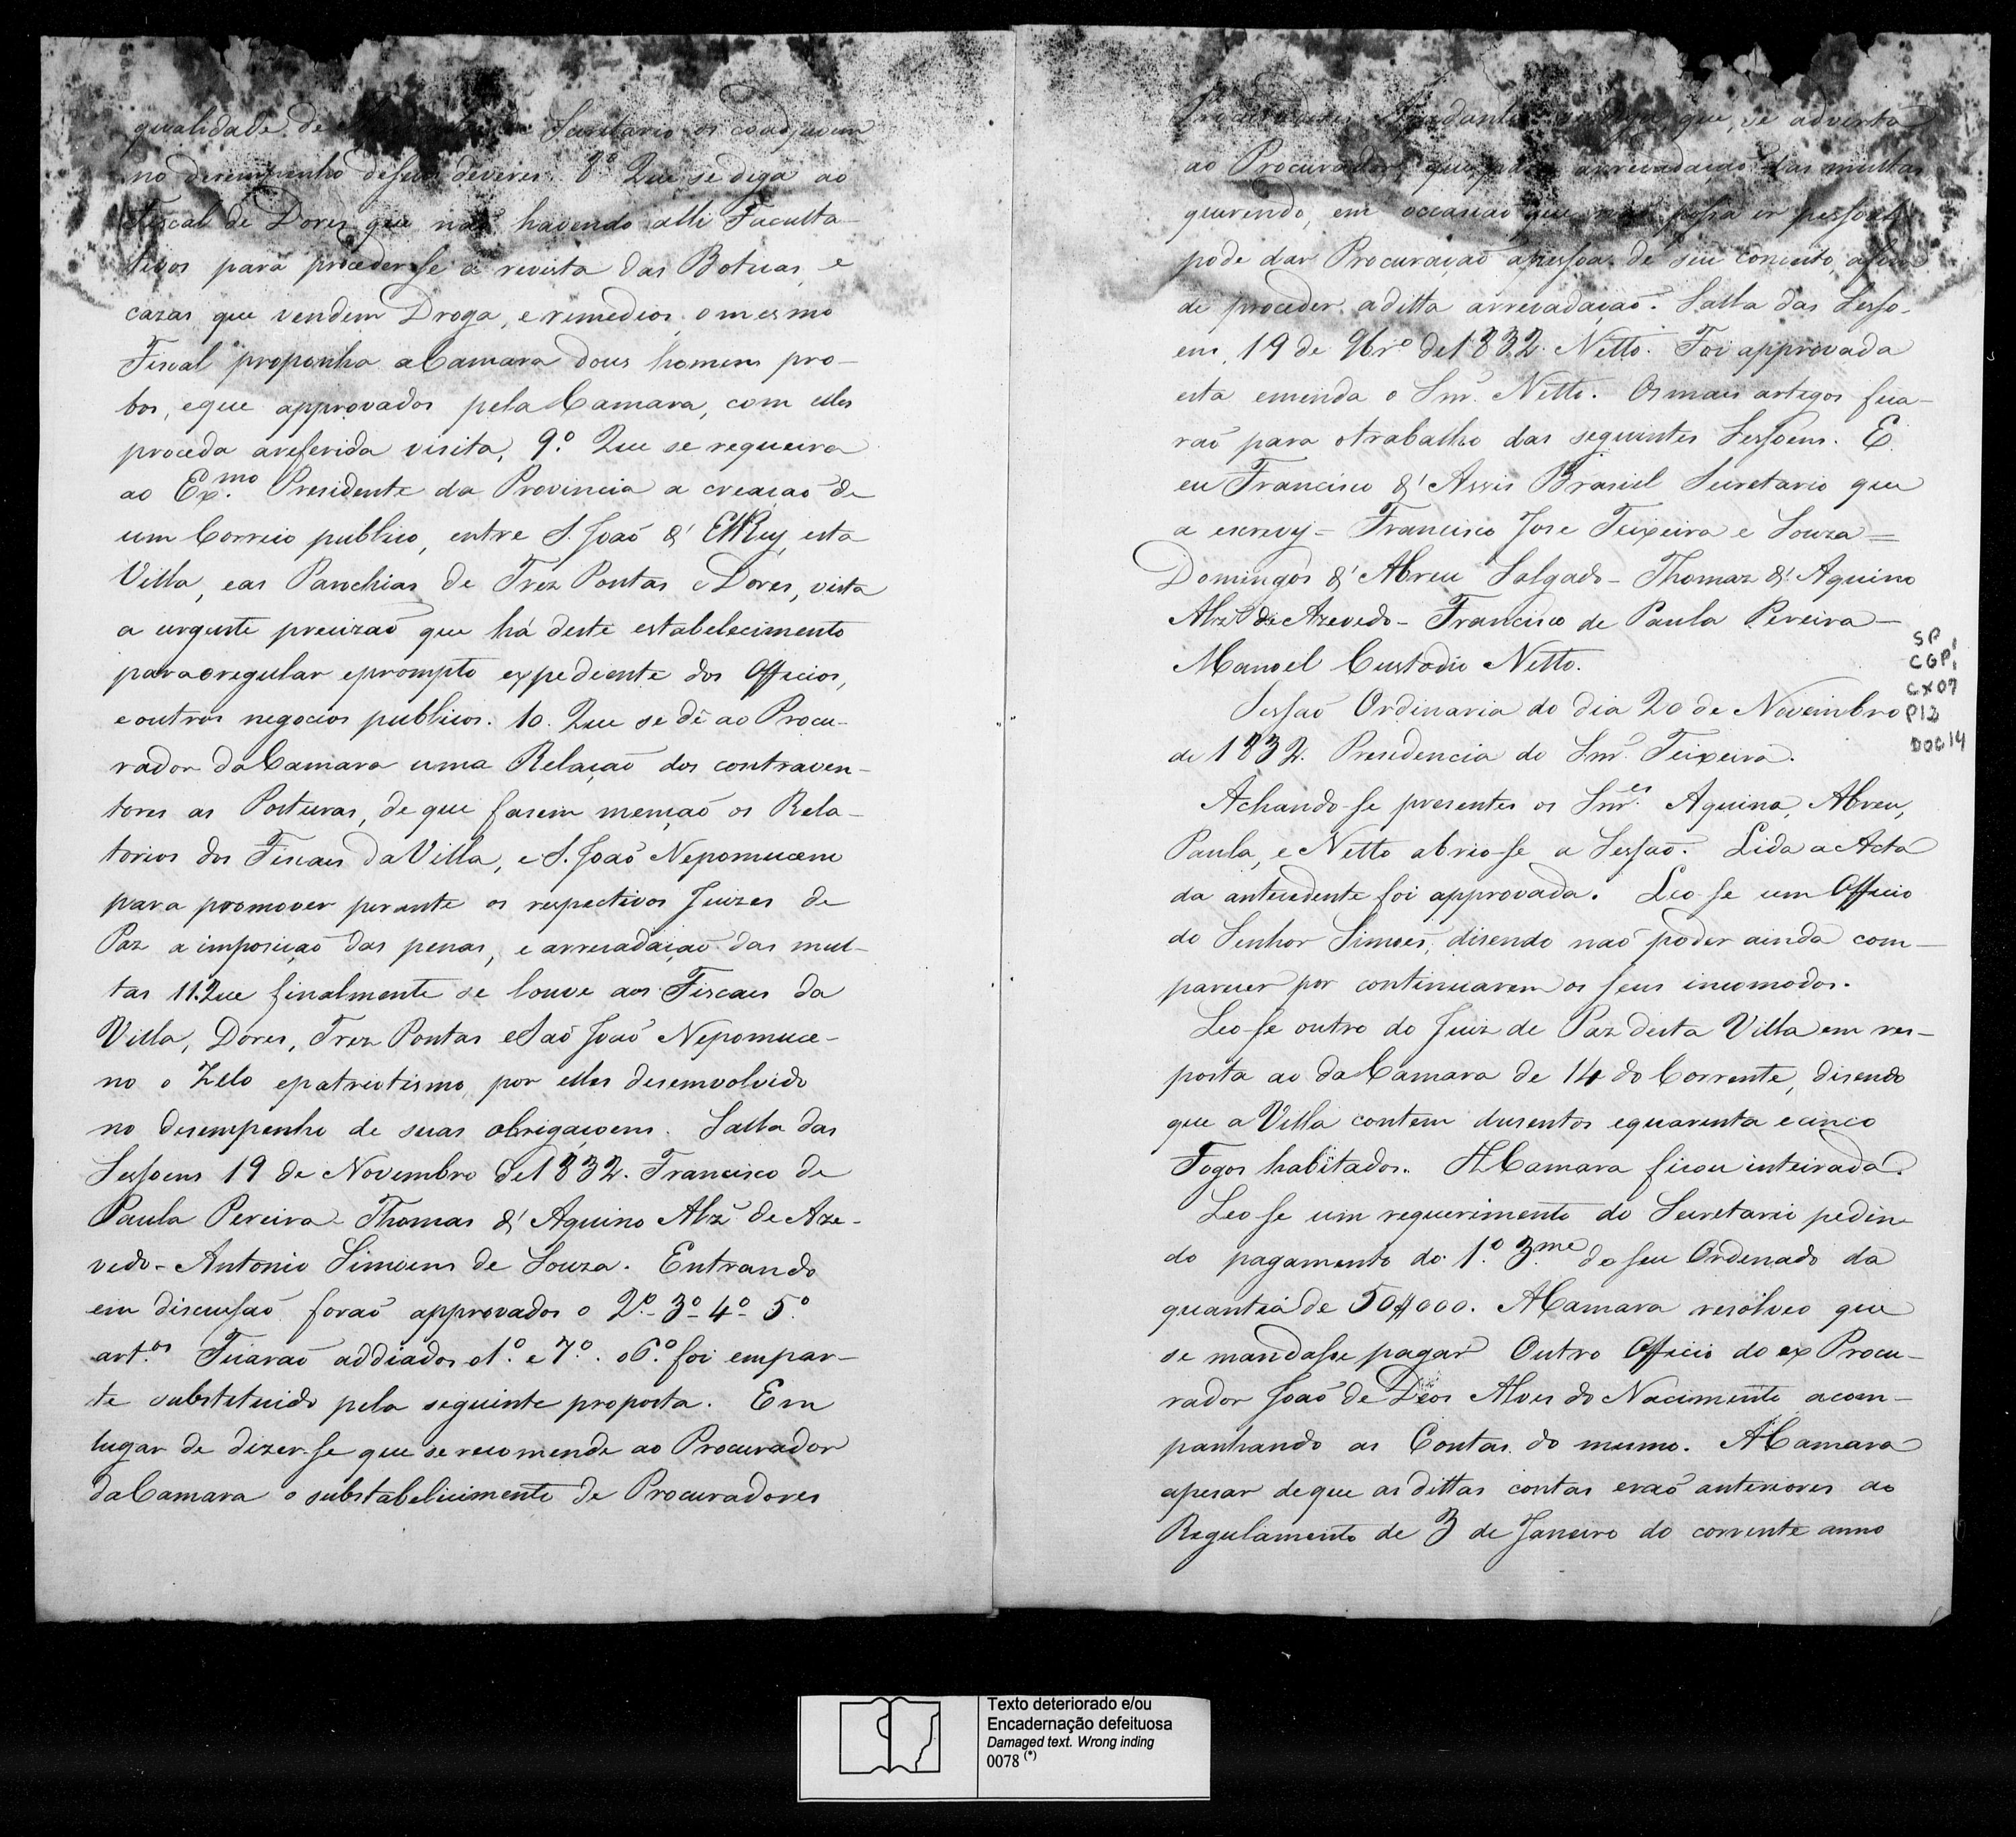 qualidade de Sanitario os coadjuvem
no dezempenho deseus deveres. 8º Que se diga ao
Fiscal de Dores que naõ havendo alli Faculta-
tivos para proceder-se a revista das Boticas, e
cazas que vendem Droga, e remedios, omesmo
Fiscal proponha aCamara dous homens pro-
bos, eque approvados pela Camara, com elles
proceda areferida visita. 9º. Que se requeira
ao Exmo. Presidente da Provincia a creaçaõ de
um Correio publico, entre S. Joaõ d'ElRey, esta
Villa, eas Parochias de Trez Pontas eDores, vista
a urgente precizaõ que há deste estabelecimento
paraoregular eprompto expediente dos Officios,
e outros negocios publicos. 10. Que se dê ao Procu-
rador daCamara uma Relaçaõ dos contraven-
tores as Posturas, de que fasem mençaõ os Rela-
torios dos Fiscaes daVilla, e S. Joaõ Nepomuceno
para promover perante os respectivos Juizes de
Paz a imposiçaõ das penas, e arrecadaçaõ das mul-
tas 11.Que finalmente se louve aos Fiscaes da
Villa, Dores, Trez Pontas eSaõ Joaõ Nepomuce-
no o Zelo epatriotismo, por elles desemvolvido
no desempenho de suas obrigaçoens. Salla das
Sessoens 19 de Novembro de1832. Francisco de
Paula Pereira - Thomas d'Aquino Alz' de Aze-
vedo - Antonio Simoens de Souza. Entrando
em discussaõ foraõ approvados o 2º- 3º- 4º- 5º
art.os Ficaraõ addiados o1º. e 7º. o6º. foi empar-
te substituido pela seguinte proposta. Em
lugar de dizer-se que se recomende ao Procurador
daCamara o substabelicimento de Procuradores
que, se advirta
ao Procurador que para arrecadaçaõ das multas
querendo, em occasiaõ que naõ possa ir pessoal
pode dar Procuraçaõ apessoa de seu conceito, afim
de proceder aditta arrecadaçaõ. Salla das Sesso-
ens, 19 de 9br.º de1832. Netto. Foi approvada
esta emenda o Snr. Netto. Osmais artigos fica-
raõ para otrabalho das seguintes Sessoens. E
eu Francisco d'Assis Brasiel Secretario que
a escrevy = Francisco Jose Teixeira e Souza =
Domingos d'Abreu Salgado - Thomaz d'Aquino
Alz' de Azevedo - Francisco de Paula Pereira -
Manoel Custodio Netto.
Sessaõ Ordinaria do dia 20 de Novembro
de 1832. Presidencia do Snr. Teixeira.
SP
CGP1
CX07
P12
DOC14
Achando-se presentes os Snr.es Aquino, Abreu,
Paula, e Netto abrio-se a Sessaõ. Lida a Acta
da antecedente foi approvada. Leo se um Officio
do Senhor Simoes, disendo naõ poder ainda com-
parecer por continuarem os seus incomodos.
Leo-se outro do Juiz de Paz desta Villa em res-
posta ao daCamara de 14 do Corrente, disendo
que a Villa contem dusentos equarenta ecinco
Fogos habitados. ACamara ficou inteirada.
Leo-se um requerimento do Secretario pedin-
do pagamento do 1º. 3.me do seu Ordenado da
quantia de 50$000. ACamara resolveo que
se mandasse pagar Outro Officio do ex Procu-
rador Joaõ de Deos Alves do Nacimento acom-
panhando as Contas do mesmo. ACamara
apesar deque as dittas contas eraõ anteriores ao
Regulamento de 3 de Janeiro do corrente anno
Texto deteriorado e/ou
Encadernação defeituosa
Damaged text. Wrong inding
0078 (*)